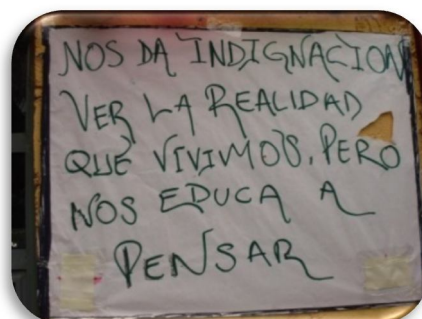 NOS DA INDIGNACION
VER LA REALIDAD
QUE VIVIMOS, PERO
NOS EDUCA A
PENSAR